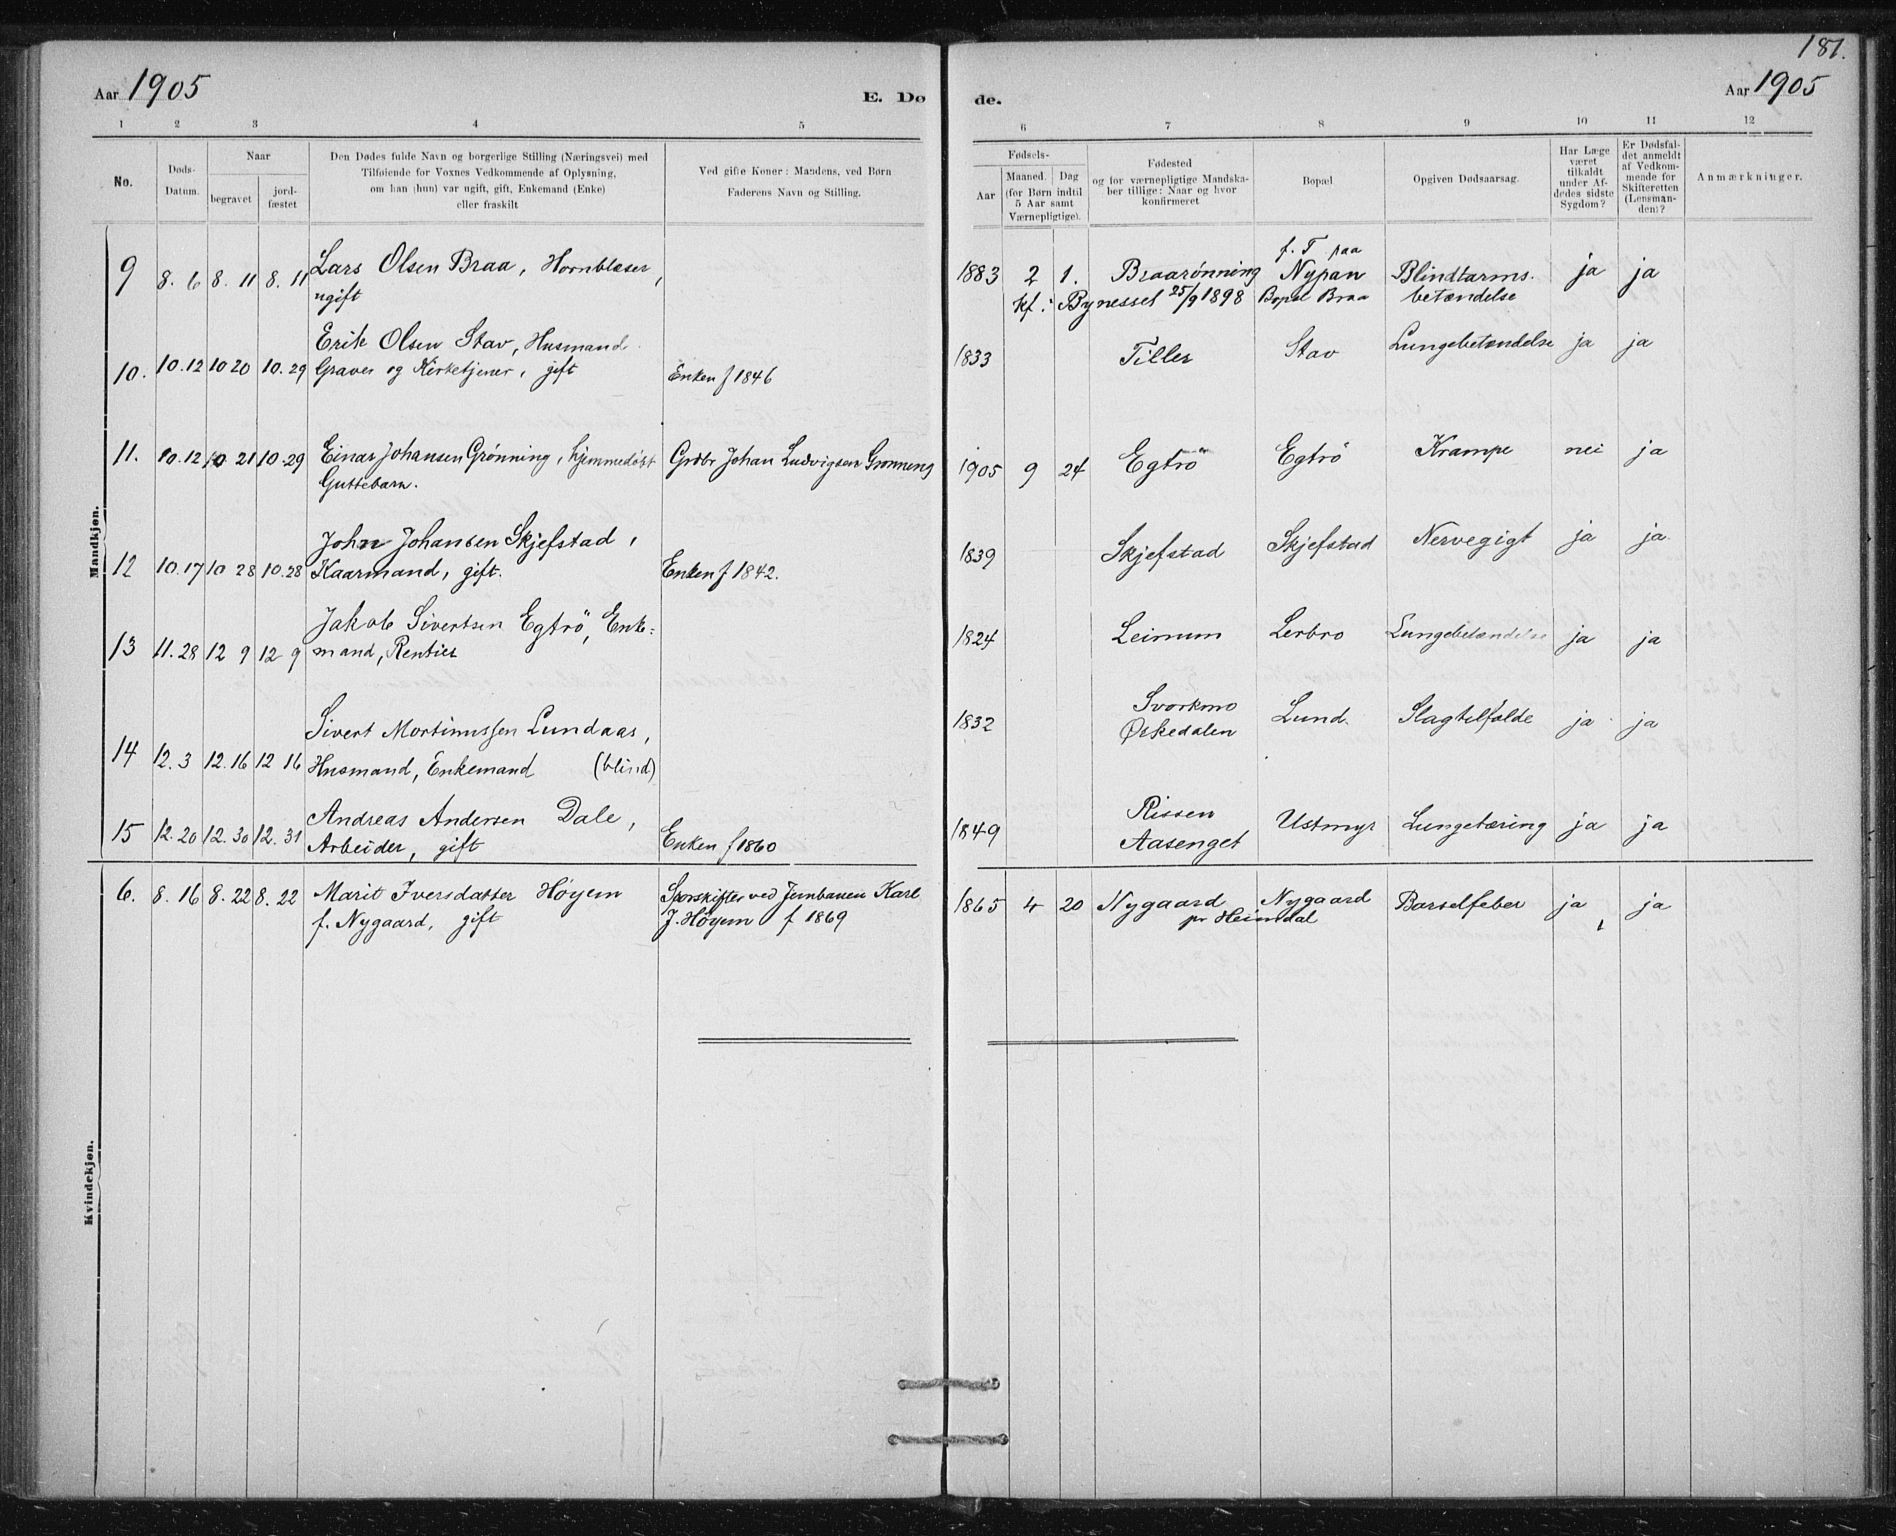 181.
Aar 1905
E. Dø
de.
Aar 1905
1 2 3 4 5
6 7 8 9 10 11 12
No.
Døds-
Datum.
Naar
begravet
jord-
fæstet
Den Dødes fulde Navn og borgerlige Stilling (Næringsvei) med
Tilføiende for Voxnes Vedkommende af Oplysning,
om han (hun) var ugift, gift, Enkemand (Enke)
eller fraskilt
Ved gifte Koner: Mandens, ved Børn
Faderens Navn og Stilling.
Fødsels-
Aar
Maaned. Dag
(for Børn indtil
5 Aar samt
Værnepligtige).
Fødested
og for værnepligtige Mandska-
ber tillige: Naar og hvor
konfirmeret
Bopæl
Opgiven Dødsaarsag.
Har Læge
været
tilkaldt
under Af-
dødes sidste
Sygdom?
Er Dødsfal-
det anmeldt
af Vedkom-
mende for
Skifteretten
(Lensman-
den)?
Anmærkninger.
Mandkjøn.
9 8. 6 8. 11 8. 11 Lars Olsen Braa, Hornblæser,
ugift
1883 2 1. Braarønning
kf. Bynesset 25/9 1898
f. T paa
Nypan
Bopæl Braa
Blindtarms-
betændelse
ja ja
10. 10.12 10 20 10. 29 Erik Olsen Stav, Husmand
Graver og Kirketjener, gift
Enken f 1846
1833 Tiller Stav Lungebetændelse ja ja
11. 10.12 10 21 10.29 Einar Johansen Grønning, hjemmedøbt
Guttebarn.
Grdbr Johan Ludvigsen Grønning
1905 9 24 Egtrö Egtrö Krampe nei ja
12 10.17 10 28 10.28 John Johansen Skjefstad,
Kaarmand, gift.
Enken f 1842.
1839 Skjefstad Skjefstad Nervegigt ja ja
13 11. 28 12 9 12 9 Jakob Sivertsen Egtrö, Enke-
mand, Rentier
1824 Leirum Lerbro Lungebetændelse ja ja
14 12. 3 12. 16 12 16 Sivert Mortinussen Lundaas,
Husmand, Enkemand (blind)
1832 Svorkmo
Ørkedalen
Lund. Slagtilfælde ja ja
15 12. 20 12. 30 12. 31 Andreas Andersen Dale,
Arbeider, gift
Enken f 1860
1849 Rissen
Aasenget
Ustmyr Lungetæring ja ja
Kvindekjøn.
6. 8. 16 8. 22 8. 22 Marit Iversdatter Höyem
f. Nygaard, gift
Sporskifter ved Jernbanen Karl
J. Höyem f 1869
1865 4 20 Nygaard Nygaard
pr Heimdal
Barselfeber ja ja